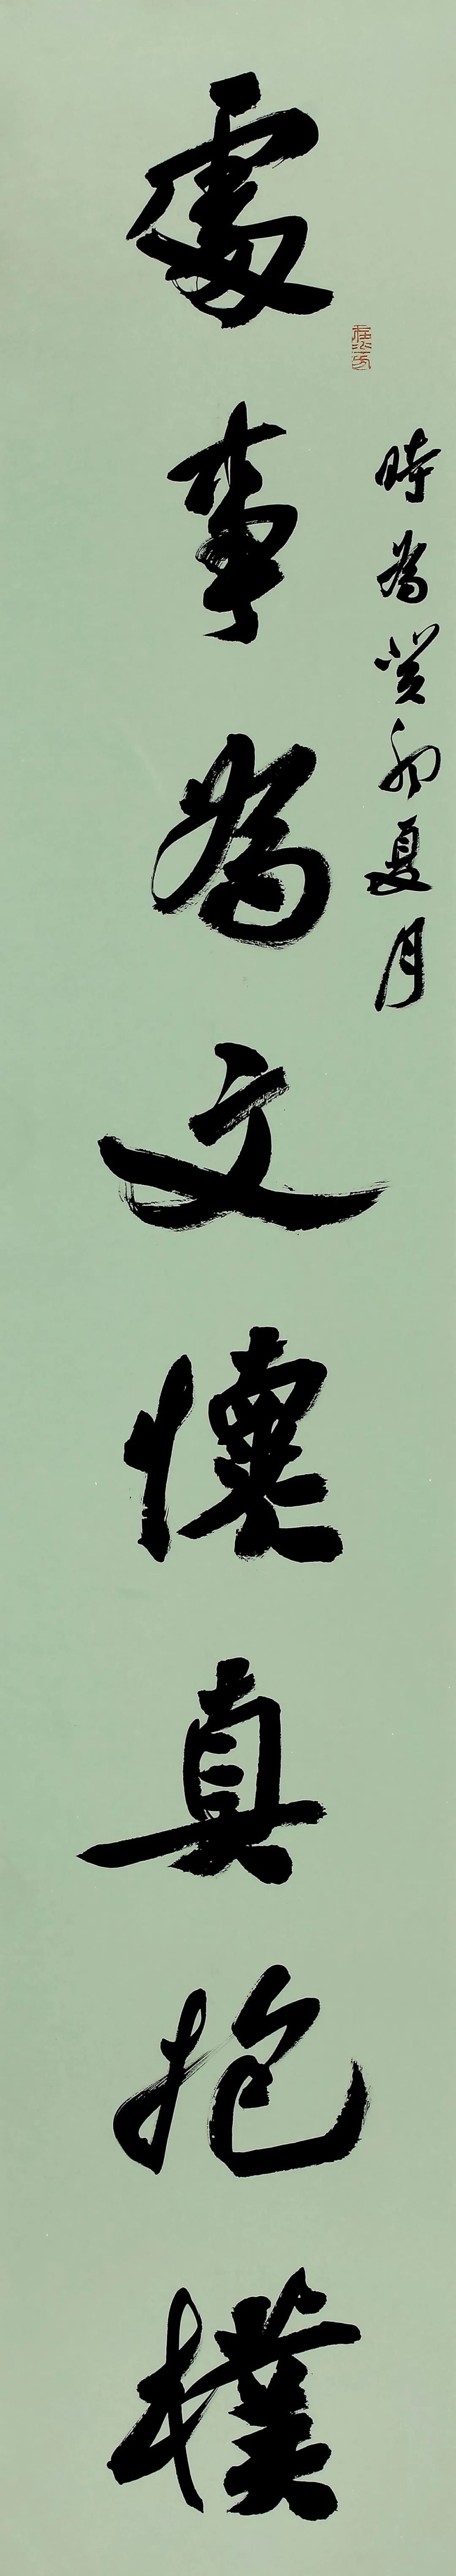 時為癸卯夏月
處事為文懷真抱樸